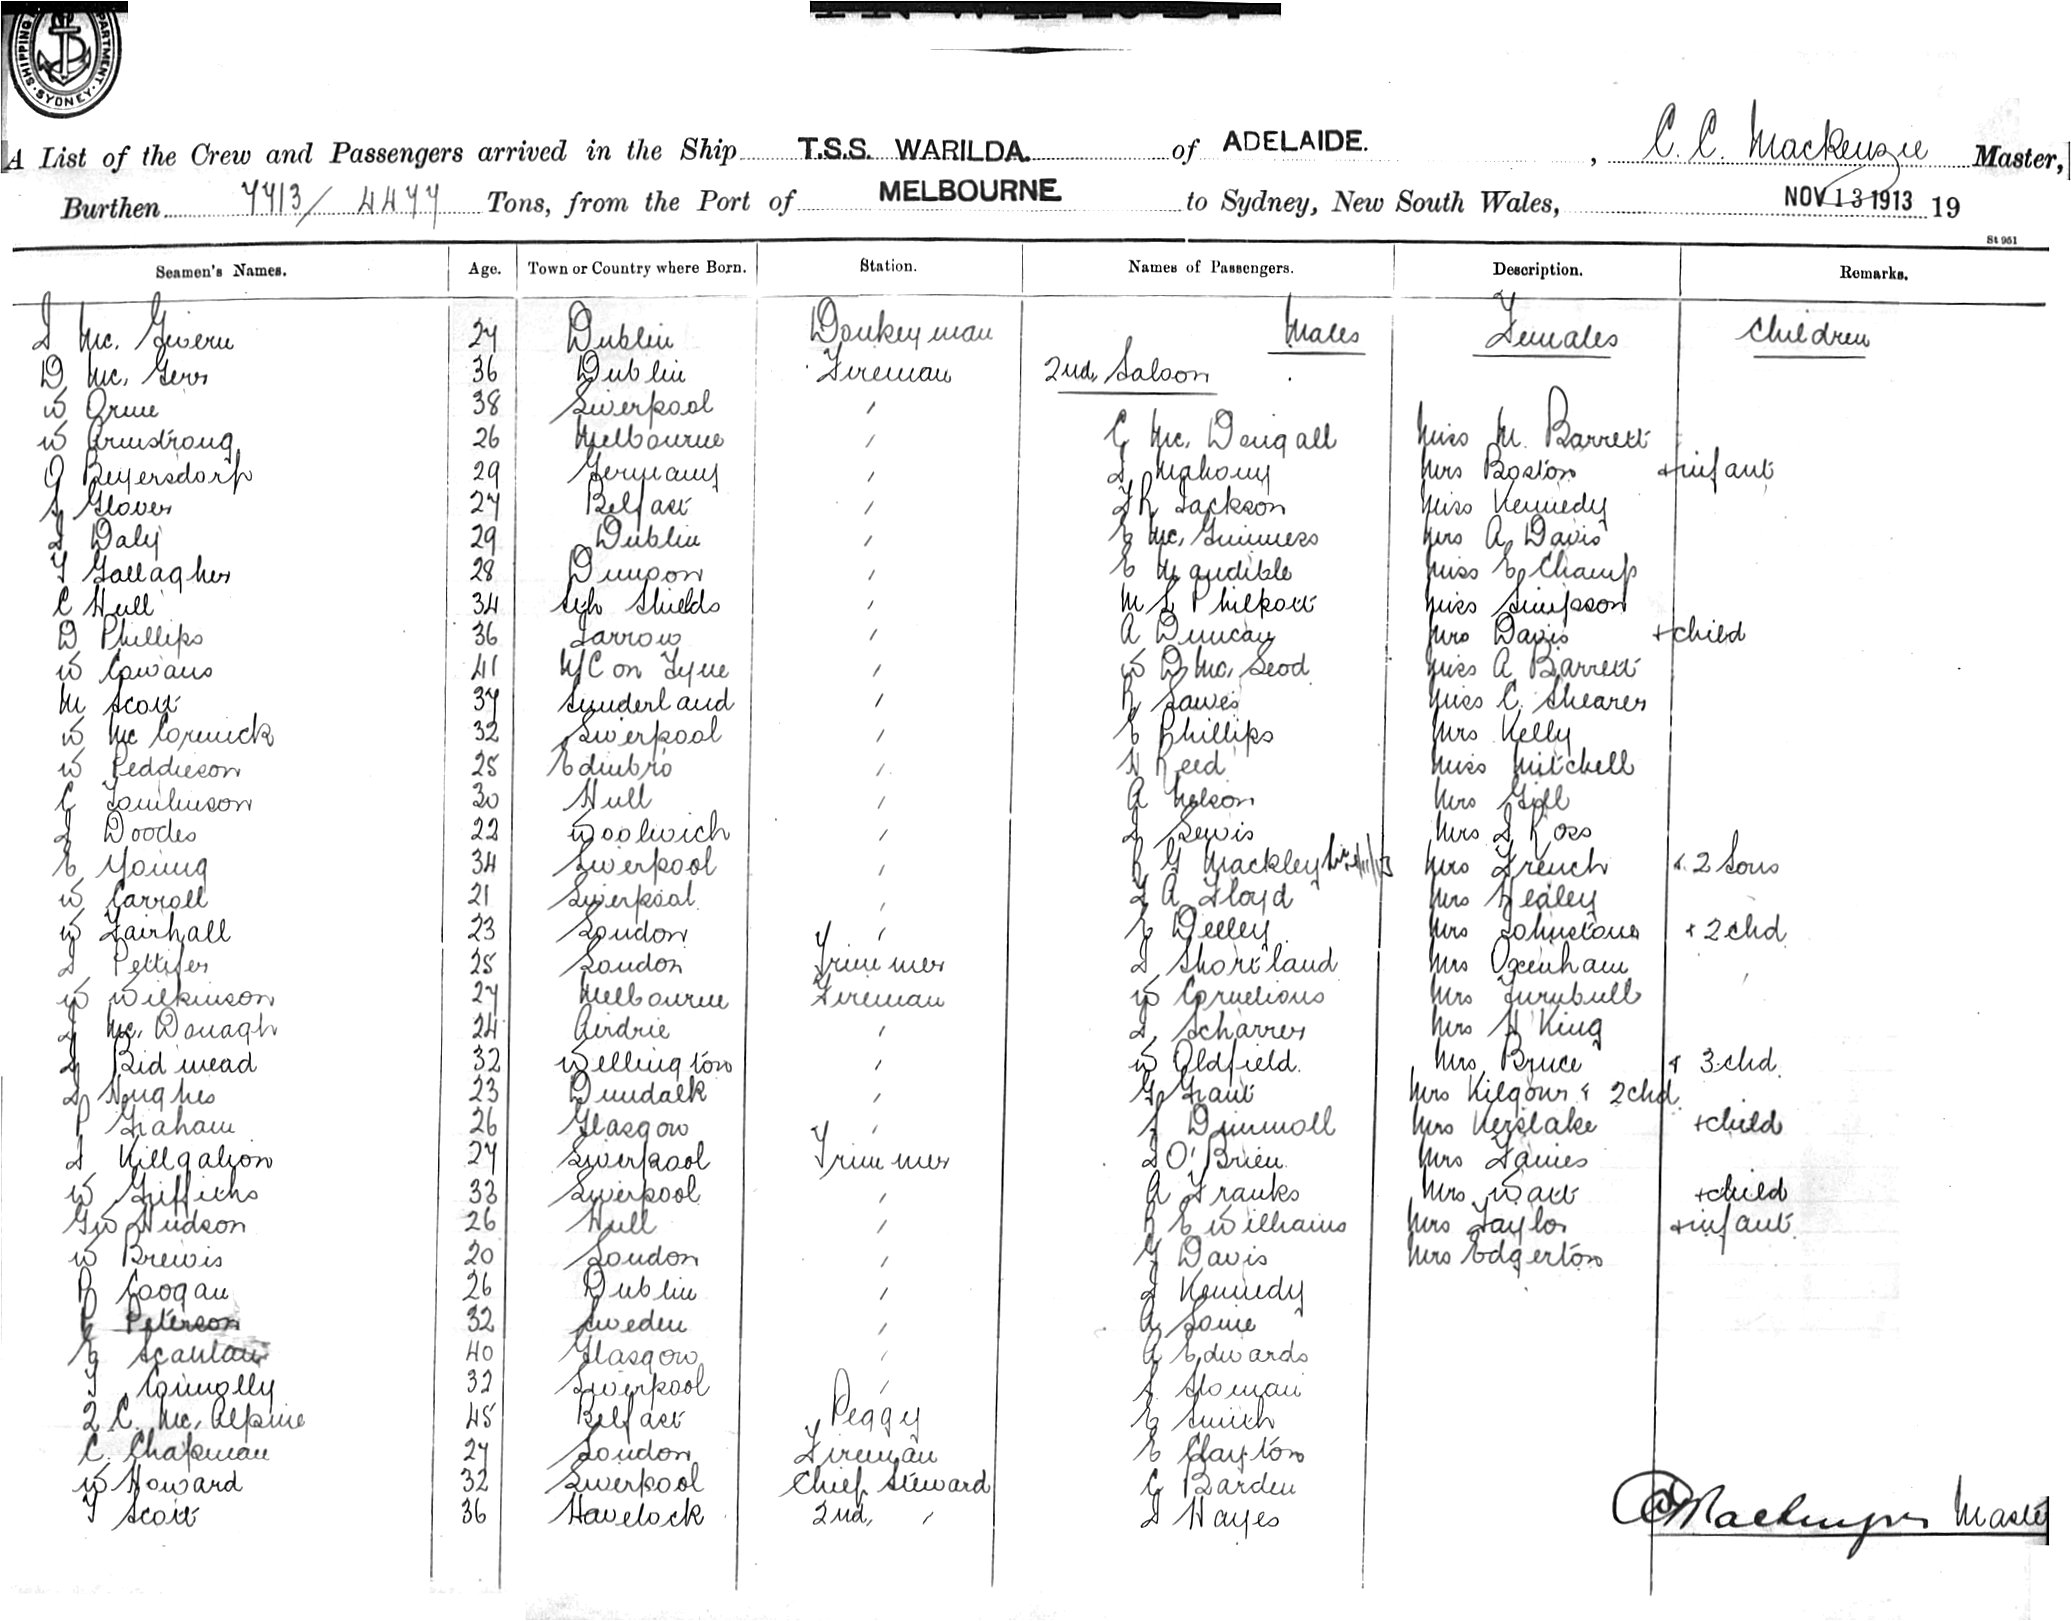 SHIPPING DEPARTMENT. SYDNEY.
A List of the Crew and Passengers arrived in the Ship T.S.S. WARILDA. of ADELAIDE. , C. C. Mackenzie Master,
Burthen 7713/4477 Tons, from the Port of MELBOURNE to Sydney, New South Wales, NOV 13 1913 19
St 951
Seamen's Names. Age. Town or Country where Born. Station. Names of Passengers. Description. Remarks.
J Mc. Givern 27 Dublin Donkeyman Males Females Children
D Mc. Gerr 36 Dublin Fireman 2nd, Saloon
W Orme 38 Liverpool "
W Armstrong 26 Melbourne " C Mc. Dougall Miss M. Barrett
O Beyersdorf 29 Germany " J Mahony Mrs Boston + infant
S Glover 27 Belfast " F R Jackson Miss Kennedy
J Daly 29 Dublin " E Mc. Guinness Mrs A Davis
T Gallagher 28 Dunoon " E Maudible Miss E Champ
C Hull 34 Sth Shields " M S Philpott Miss Simpson
D Phillips 36 Jarrow " A Duncan Mrs Davis + child
W Cowans 41 N/C on Tyne " W D Mc. Leod Miss A Barrett
M Scott 37 Sunderland " R Lawes Miss C. Shearer
W Mc Cormick 32 Liverpool " E Phillips Mrs Kelly
W Peddieson 25 Edinbro " H Reed Miss Mitchell
C Tomlinson 30 Hull " A Nelson Mrs Gill
J Doodes 22 Woolwich " J Lewis Mrs J Ross
E Young 34 Liverpool " R G Mackley Mrs French & 2 Sons
W Carroll 21 Liverpool " F A Floyd Mrs Healey
W Fairhall 23 London " E Deeley Mrs Johnstone & 2 chd
J Pettifer 25 London Trimmer J Shortland Mrs Oxenham
W Wilkinson 27 Melbourne Fireman W Cornelious Mrs Turnbull
J Mc. Donagh 24 Airdrie " J Scharrer Mrs H King
J Bidmead 32 Wellington " W Oldfield Mrs Bruce & 3 chd
J Hughes 23 Dundalk " G Grant Mrs Kilgour & 2 chd
P Graham 26 Glasgow " J Dimmoll Mrs Kerslake + child
J Killgalion 27 Liverpool Trimmer J O'Brien Mrs Janies
W Griffiths 33 Liverpool " A Franks Mrs Watt + child
G W Hudson 26 Hull " R E Williams Mrs Taylor + infant
W Brewis 20 London " G Davis Mrs Edgerton
P Coogan 26 Dublin " J Kennedy
Peterson 32 Sweden " A Lorie
E Scanlan 40 Glasgow " A Edwards
T Connolly 32 Liverpool " S Sloman
2 C. Mc. Alpine 45 Belfast Peggy E Smith
C. Chapman 27 London Fireman E Clayton
W Howard 32 Liverpool Chief Steward C Barden
T Scott 36 Havelock 2nd, " J Hayes
CC Mackenzie Master